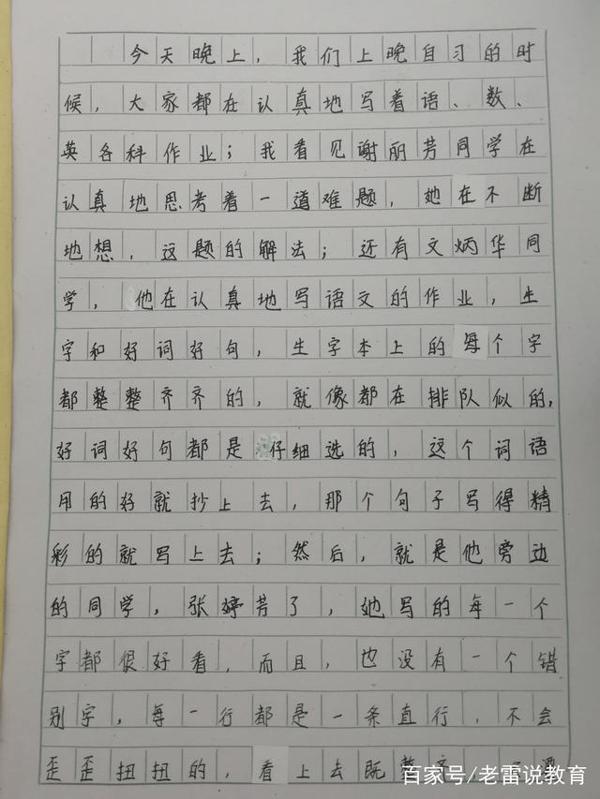 今天晚上，我们上晚自习的时
候，大家都在认真地写着语、数、
英各科作业；我看见谢丽芳同学在
认真地思考着一道难题，她在不断
地想，这题的解法；还有文炳华同
学，他在认真地写语文的作业，生
字和好词好句，生字本上的每个字
都整整齐齐的，就像都在排队似的，
好词好句都是仔细选的，这个词语
用的好就抄上去，那个句子写得精
彩的就写上去；然后，就是他旁边
的同学，张婷芳了，她写的每一个
字都很好看，而且，也没有一个错
别字，每一行都是一条直行，不会
歪歪扭扭的，看上去既整
百家号/老雷说教育